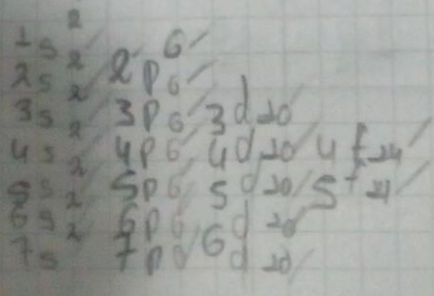 1s²
2s² 2p⁶
3s² 3p⁶ 3d¹⁰
4s² 4p⁶ 4d¹⁰ 4f¹⁴
5s² 5p⁶ 5d¹⁰ 5f¹⁴
6s² 6p⁶ 6d¹⁰
7s² 7p⁶ 6d¹⁰